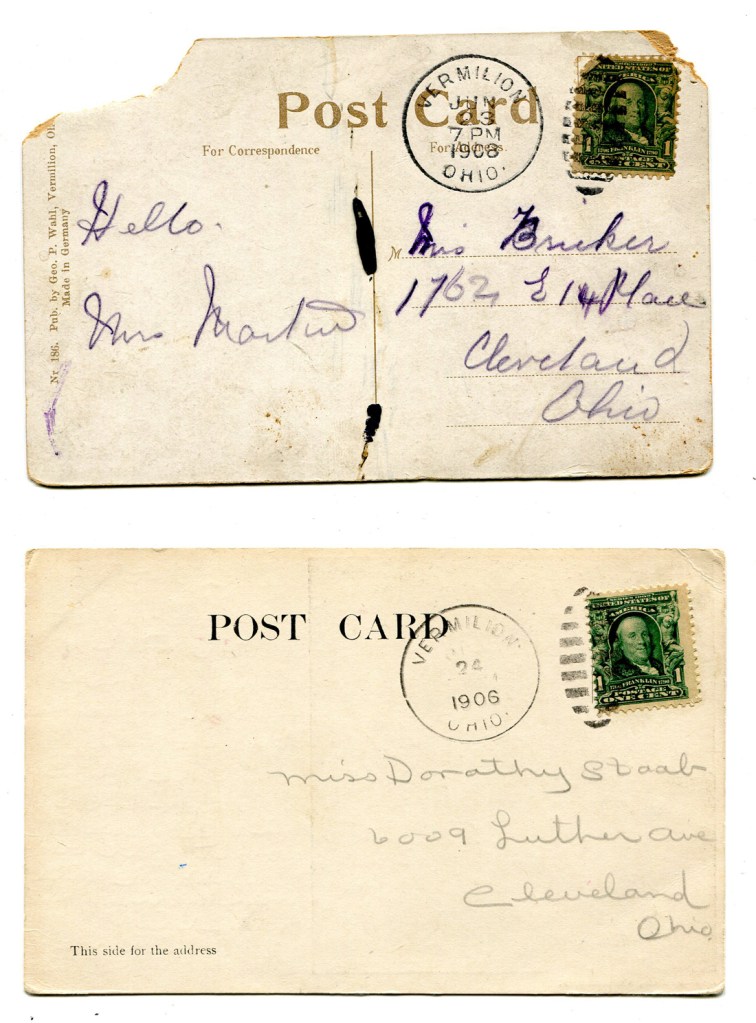 Post Card
For Correspondence
For Address.
VERMILION
JUN
23
7 PM
1908
OHIO.
UNITED STATES OF
AMERICA
1 FRANKLIN 1
POSTAGE
ONE CENT
Nr. 186. Pub. by Geo. P. Wahl, Vermilion, Oh
Made in Germany
Hello.
Mrs Martin
M
1762 E 14 Place
Cleveland
Ohio
POST CARD
VERMILION
24
1906
OHIO.
UNITED STATES OF
AMERICA
1 FRANKLIN 1
POSTAGE
ONE CENT
Miss Dorathy Staab
6009 Luther ave
Cleveland
Ohio
This side for the address